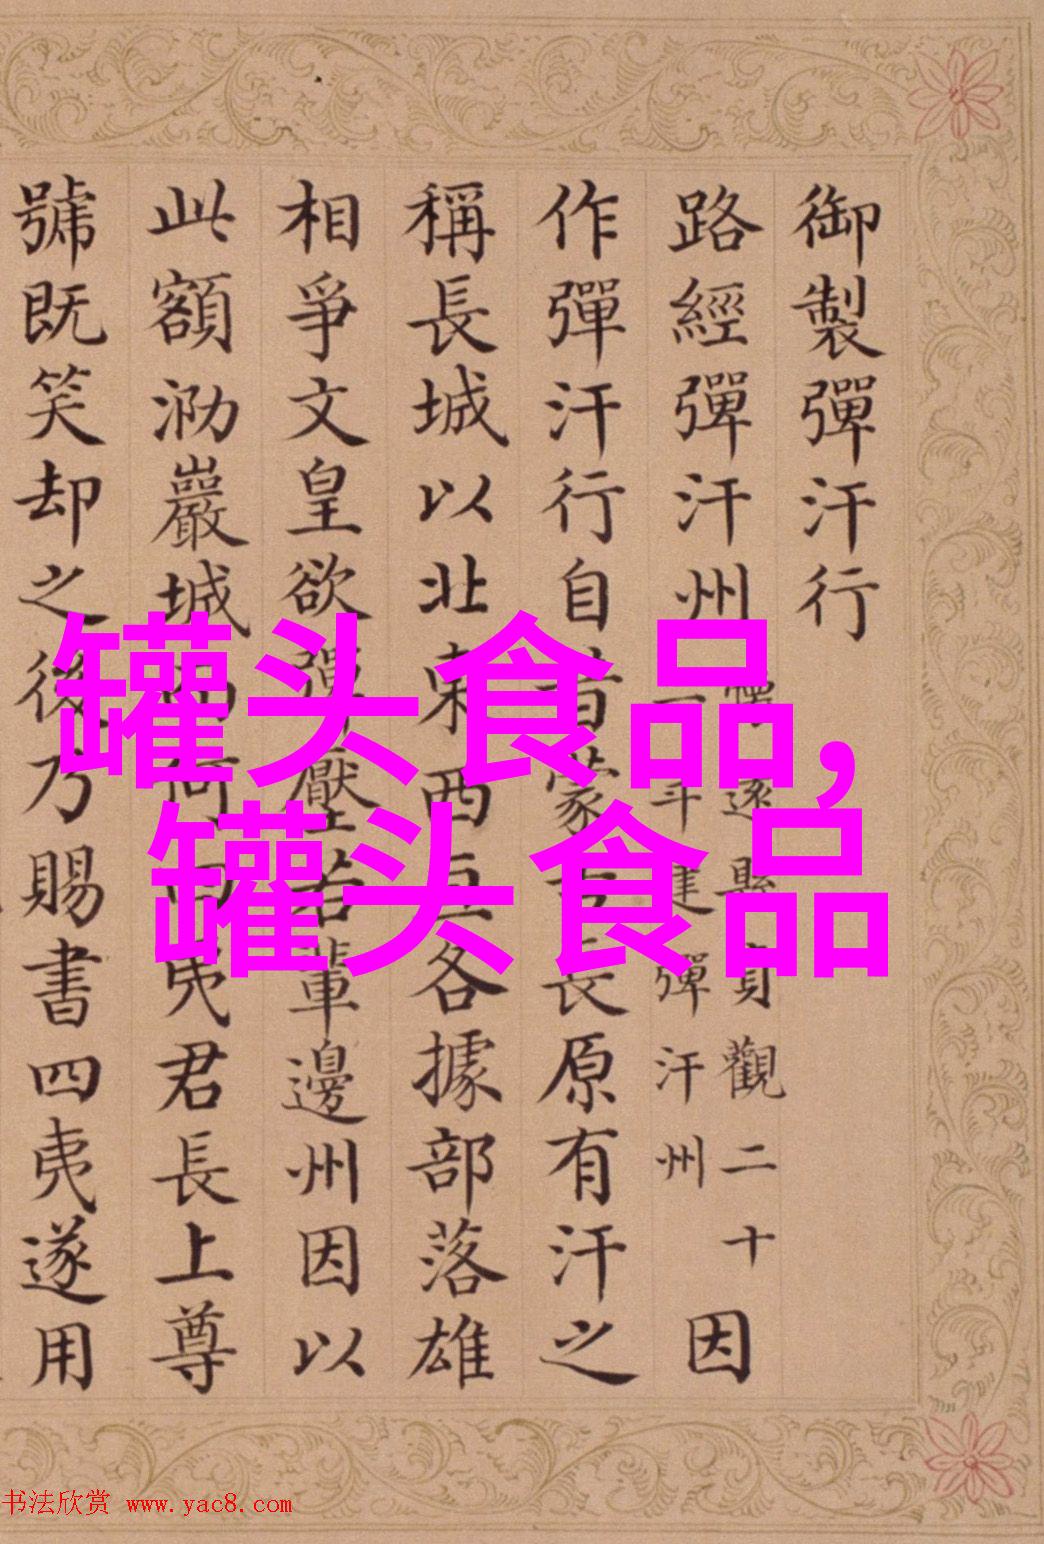 御製彈汗行
路經彈汗州
懷遠縣貞觀二十
一年建彈汗州
因
作彈汗行自昔蒙古長原有汗之
稱長城以北東西亘各據部落雄
相爭文皇欲彈壓若輩邊州因以
此額泐巖城何夷君長上尊
號既笑却之後乃賜書四夷遂用
罐头食品,
罐头食品
书法欣赏 www.yac8.com